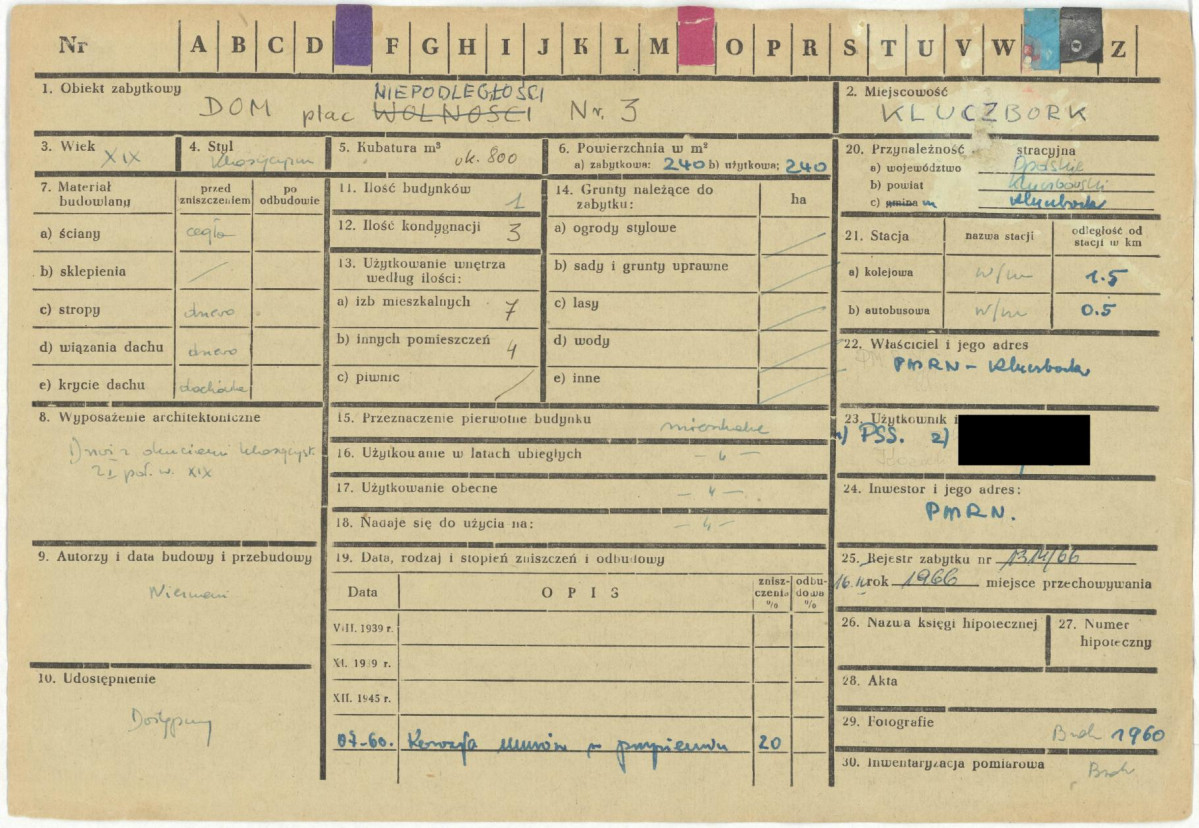 Nr A B C D F G H I J K L M O P R S T U V W Z
1. Obiekt zabytkowy
NIEPODLEGŁOŚCI
DOM plac WOLNOŚCI Nr. 3
2. Miejscowość
KLUCZBORK
3. Wiek
XIX
4. Styl
klasycyzm
5. Kubatura m³
ok. 800
6. Powierzchnia w m²
a) zabytkowa: 240 b) użytkowa; 240
20. Przynależność stracyjna
a) województwo Opolskie
b) powiat Kluczborski
c) gmina m Kluczbork
7. Materiał budowlany
przed zniszczeniem
po odbudowie
a) ściany cegła
b) sklepienia /
c) stropy drewo
d) wiązania dachu drewo
e) krycie dachu dachówka
8. Wyposażenie architektoniczne
Drzwi z okuciami klasycyst.
2 poł. w. XIX
9. Autorzy i data budowy i przebudowy
Nieznani
10. Udostępnienie
Dostępny
11. Ilość budynków 1
12. Ilość kondygnacji 3
13. Użytkowanie wnętrza
według ilości:
a) izb mieszkalnych 7
b) innych pomieszczeń 4
c) piwnic /
14. Grunty należące do
zabytku:
ha
a) ogrody stylowe
b) sady i grunty uprawne
c) lasy
d) wody
e) inne
15. Przeznaczenie pierwotne budynku mieszkalne
16. Użytkowanie w latach ubiegłych - " -
17. Użytkowanie obecne - " -
18. Nadaje się do użycia na: - " -
19. Data, rodzaj i stopień zniszczeń i odbudowy
Data
OPIS
zniszczenia %
odbudowa %
VIII. 1939 r.
XI. 1939 r.
XII. 1945 r.
07-60. Korozja murów w przyziemiu 20
21. Stacja
nazwa stacji
odległość od
stacji w km
a) kolejowa w/m 1.5
b) autobusowa w/m 0.5
22. Właściciel i jego adres
PMRN - Kluczbork
23. Użytkownik i
1) PSS. 2)
24. Inwestor i jego adres:
PMRN.
25. Rejestr zabytku nr 1314/66
rok 1966 miejsce przechowywania
26. Nazwa księgi hipotecznej
27. Numer
hipoteczny
28. Akta
29. Fotografie
Brak 1960
30. Inwentaryzacja pomiarowa
Brak